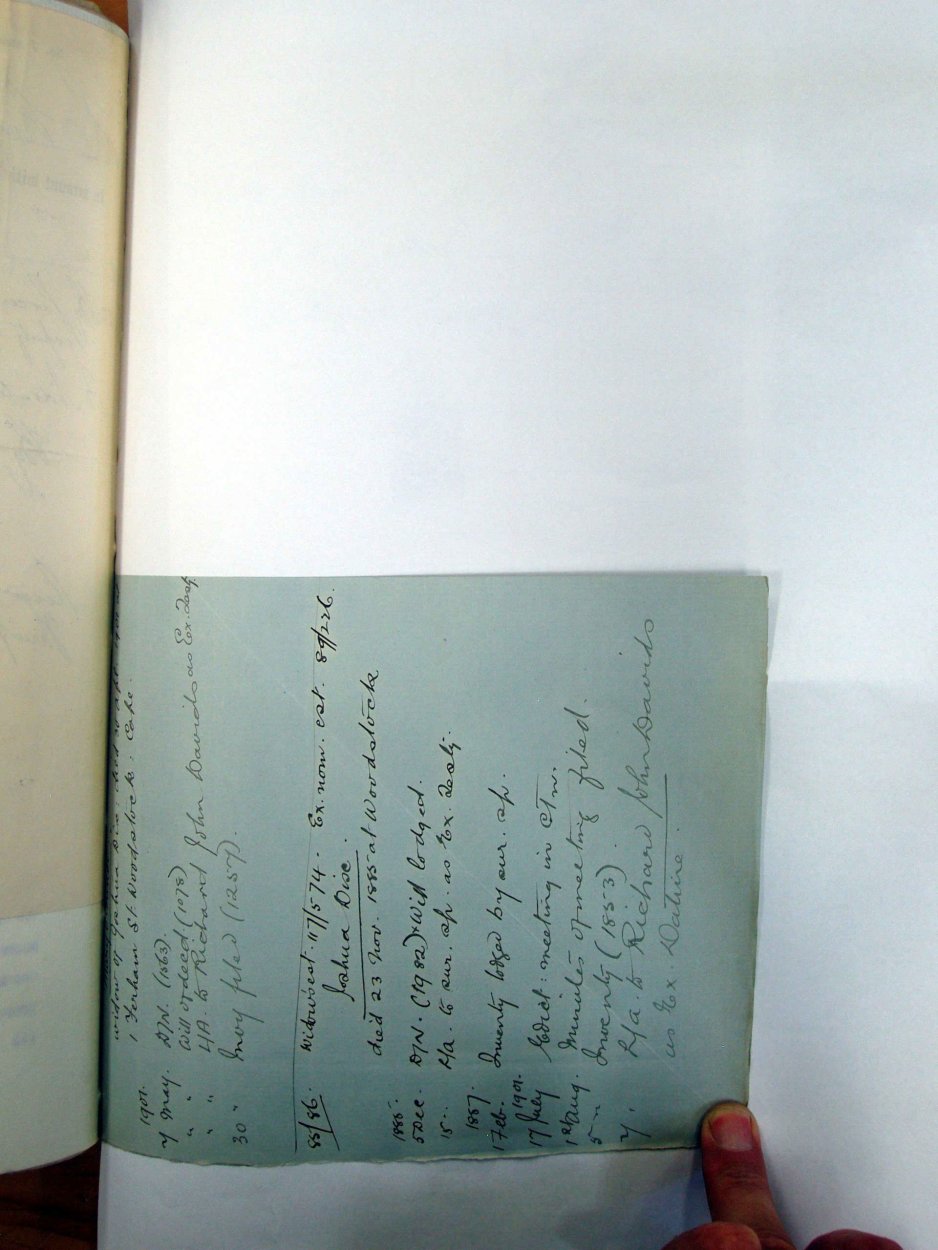 widow of Joshua Dise
1 Yerham St. Woodstock. Cape.
1901.
7 May. D/N. (1863).
" " Will ordered (1078)
" " L/A. to Richard John Davids as Ex.
30 " Invy filed (1257).
85/86. Widow's est. 117/574. Ex. nom. est. 89/226.
Joshua Dise.
died 23 Nov. 1885 at Woodstock
1885.
5 Dec. D/N. (1982) & Will lodged.
15 - L/A. to sur. sp. as Ex.
1887.
17 Feb. Inventy lodged by sur. sp.
1901.
17 July Edict: meeting in CTn.
1st Aug. Minutes of meeting filed.
5 " Inventy (1853).
7 " L/A. to Richard John Davids
as Ex. Dative.